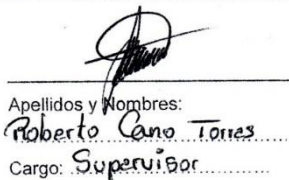 Apellidos y Nombres:
Roberto Cano Torres
Cargo: Supervisor